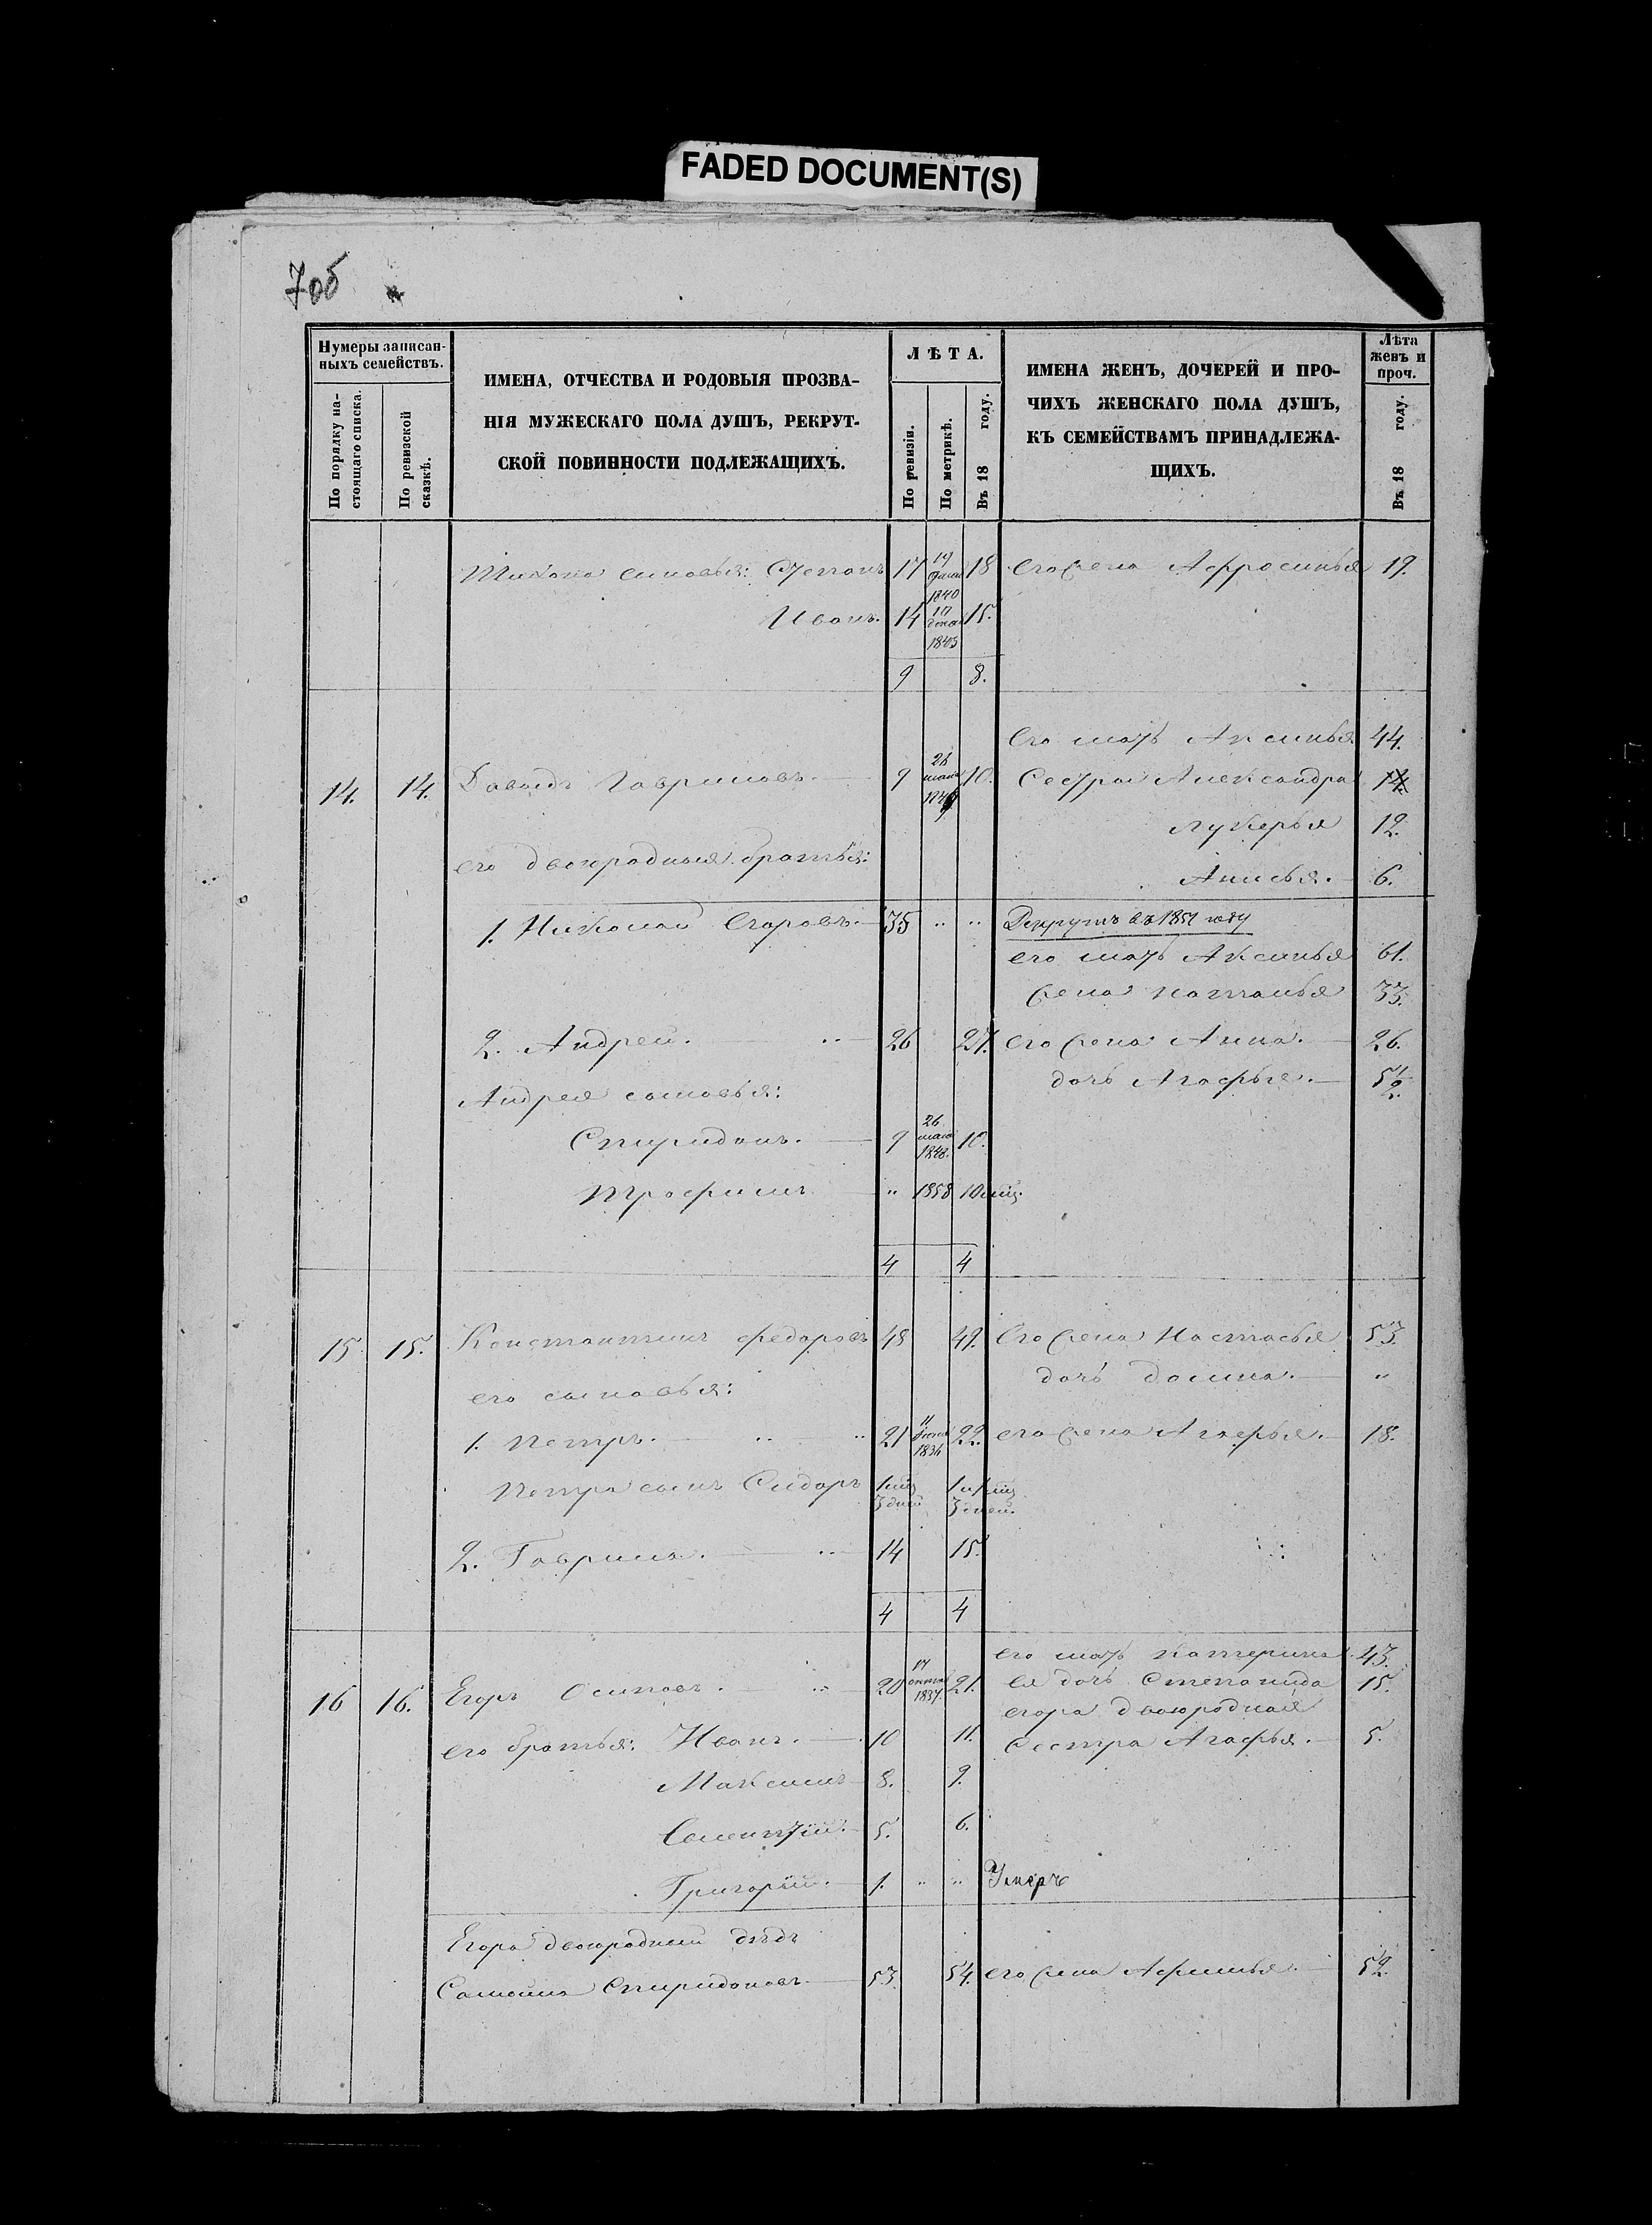 FADED DOCUMENT(S)
7об
Нумеры записан-
ныхъ семействъ.
По порядку на-
стоящаго списка.
По ревизской
сказкѣ.
ИМЕНА, ОТЧЕСТВА И РОДОВЫЯ ПРОЗВА-
НІЯ МУЖЕСКАГО ПОЛА ДУШЪ, РЕКРУТ-
СКОЙ ПОВИННОСТИ ПОДЛЕЖАЩИХЪ.
ЛѢТА.
По ревизіи.
По метрикѣ.
Въ 18 году.
ИМЕНА ЖЕНЪ, ДОЧЕРЕЙ И ПРО-
ЧИХЪ ЖЕНСКАГО ПОЛА ДУШЪ,
КЪ СЕМЕЙСТВАМЪ ПРИНАДЛЕЖА-
ЩИХЪ.
Лѣта
женъ и
проч.
Въ 18 году.
сыновья: Степанъ 17 19 1840 18 его жена Афросинья 19.
Иванъ. 14 15.
9 8.
Его мать Аксинья 44.
14. 14. Давыдъ Гавриловъ. 9 10. Сестра Александра
Лукерья 12.
его двоюродныя братья:
Анисья. 6.
1. Николай Егоровъ. 35 " " Рекрутъ въ году
его мать Аксинья 61.
жена Наталья 33.
2. Андрей. " 26 27. его жена Анна. 26.
дочь Агафья. 5½
Андрея сыновья:
Спиридонъ. 9 26 мая 1848. 10.
Трофимъ " 1858 10 мѣц.
4 4
15 15. Константинъ Федоровъ 48 49. Его жена Настасья 53.
его сыновья: дочь Домна. "
1. Петръ. " " 21 11 22. его жена 18.
Петра сынъ Сидоръ 1 мѣц 3 дней 3 дней.
2. Гаврила. " 14 15.
4 4
его мать Катерина 43.
16 16. Егоръ Осиповъ. " 20 17 1837. 21. Ея дочь Степанида 15.
егора двоюродная
его братья: Иванъ. 10 11. сестра Агафья. 5.
Максимъ 8. 9.
5. 6.
Григорій. 1. " " Умеръ
Егора двоюродный дѣдъ
Самойла Спиридоновъ 53 54. его жена Афимья. 52.